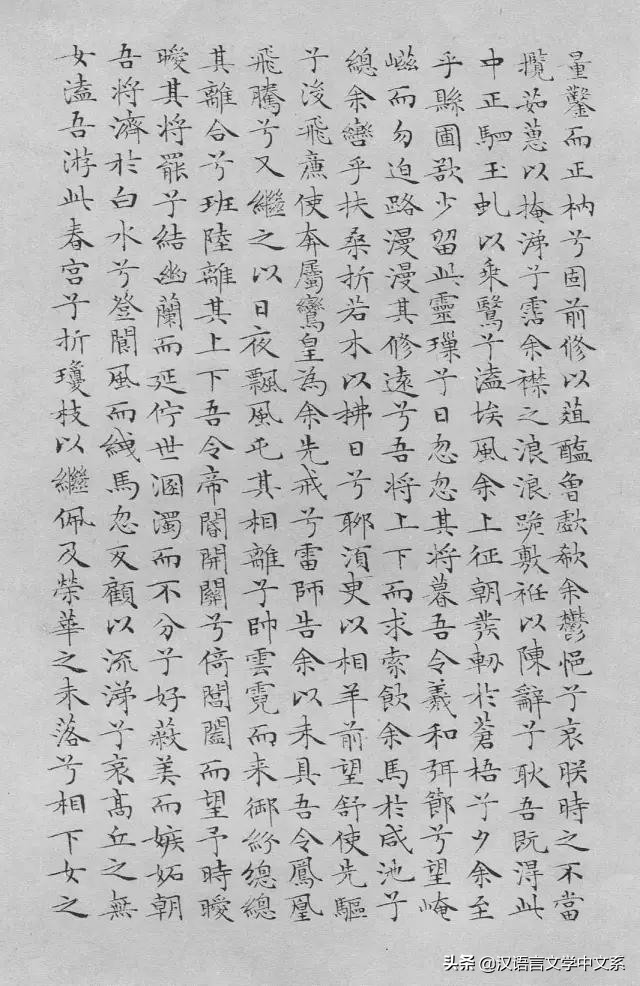 量鑿而正枘兮固前修以菹醢曾歔欷余鬱悒兮哀朕時之不當
攬茹蕙以掩涕兮霑余襟之浪浪跪敷衽以陳辭兮耿吾既得此
中正駟玉虬以乘鷖兮溘埃風余上征朝發軔於蒼梧兮夕余至
乎縣圃欲少留此靈瑣兮日忽忽其將暮吾令羲和弭節兮望崦
嵫而勿迫路漫漫其修遠兮吾將上下而求索飲余馬於咸池兮
總余轡乎扶桑折若木以拂日兮聊須臾以相羊前望舒使先驅
兮後飛廉使奔屬鸞皇為余先戒兮雷師告余以未具吾令鳳凰
飛騰兮又繼之以日夜飄風屯其相離兮帥雲霓而来御紛總總
其離合兮班陸離其上下吾令帝閽開關兮倚閶闔而望予時曖
曖其將罷兮結幽蘭而延佇世溷濁而不分兮好蔽美而嫉妬朝
吾將濟於白水兮登閬風而緤馬忽反顧以流涕兮哀高丘之無
女溘吾游此春宮兮折瓊枝以繼佩及榮華之未落兮相下女之
头条 @汉语言文学中文系